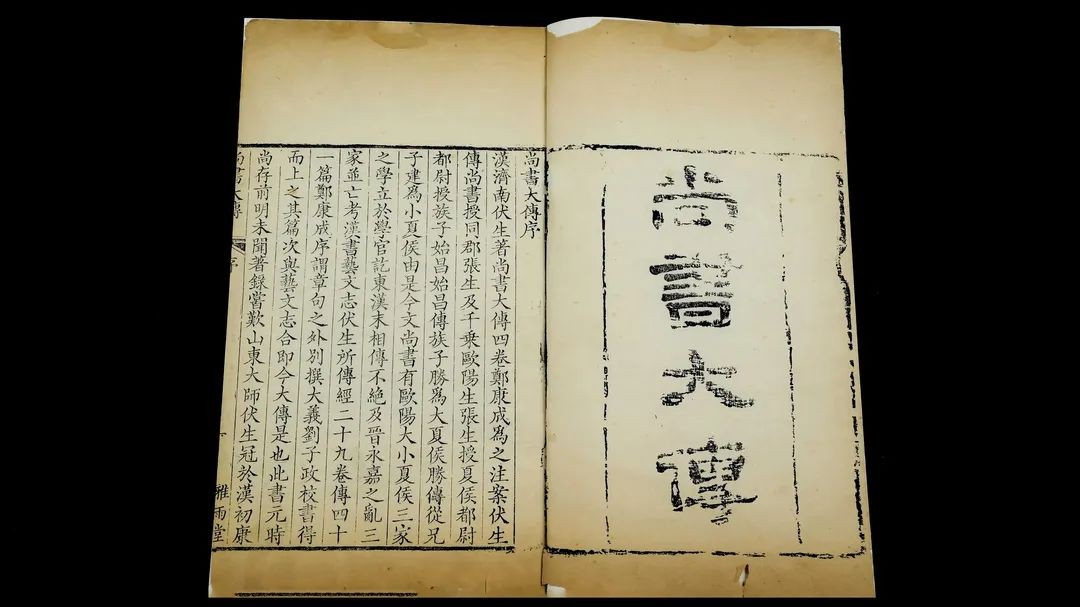 尚書大傳
尚書大傳序
漢濟南伏生著尚書大傳四卷鄭康成爲之注案伏生
傳尚書授同郡張生及千乘歐陽生張生授夏侯都尉
都尉授族子始昌始昌傳族子勝爲大夏侯勝傳從兄
子建爲小夏侯由是今文尚書有歐陽大小夏侯三家
之學立於學官訖東漢末相傳不絶及晉永嘉之亂三
家並亡考漢書藝文志伏生所傳經二十九卷傳四十
一篇鄭康成序謂章句之外別撰大義劉子政校書得
而上之其篇次與藝文志合即今大傳是也此書元時
尚存前明未聞著錄嘗歎山東大師伏生冠於漢初康
尚書大傳 序 雅雨堂